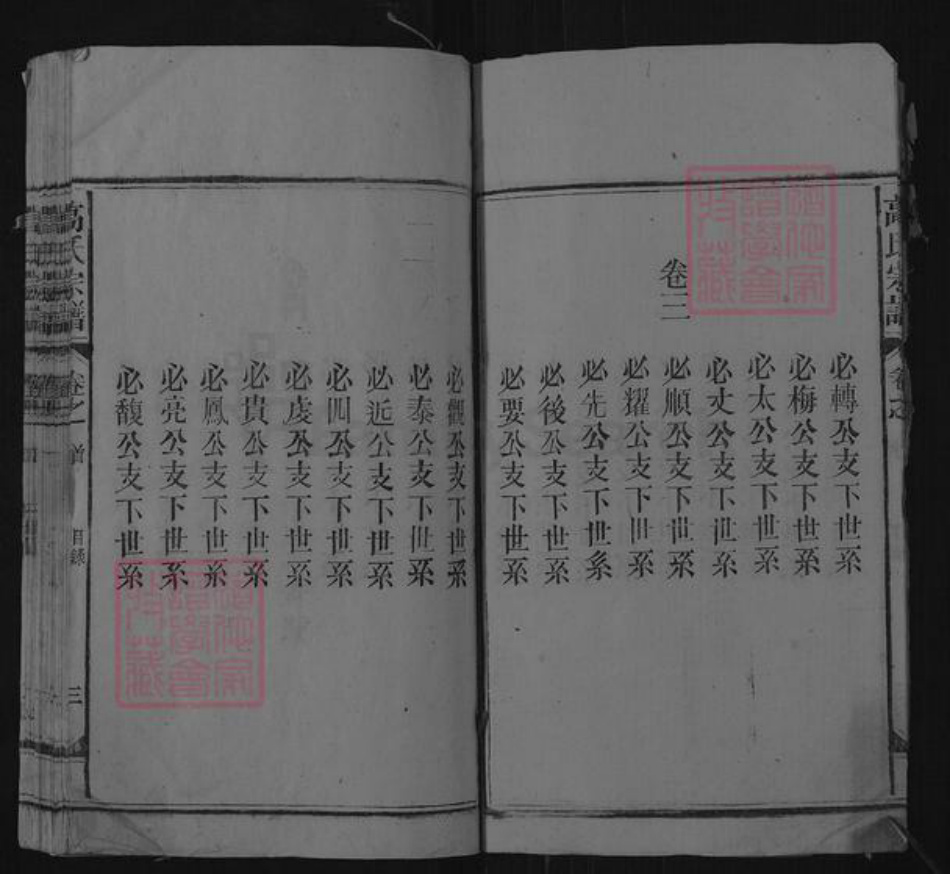 高氏宗譜
卷三
必轉公支下世系
必梅公支下世系
必太公支下世系
必文公支下世系
必順公支下世系
必耀公支下世系
必先公支下世系
必後公支下世系
必要公支下世系
必觀公支下世系
必泰公支下世系
必近公支下世系
必四公支下世系
必虔公支下世系
必貴公支下世系
必鳳公支下世系
必亮公支下世系
必馥公支下世系
高氏宗譜
卷之一
目錄
三